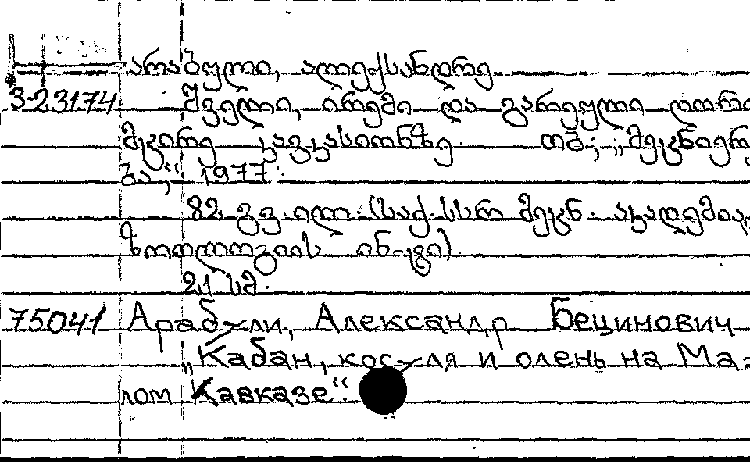 არაბული, ალექსანდრე
3-23174 შველი, ირემი და გარეული ღორი
მცირე კავკასიონზე თბ., „მეცნიერე
ბა,“ 1977.
82 გვ. ილ. (საქ. სსრ მეცნ. აკადემია,
ზოოლოგიის ინ-ტი)
21 სმ.
75041 Арабули, Александр Бецинович
„Кабан, косуля и олень на Ма-
лом Кавказе“.